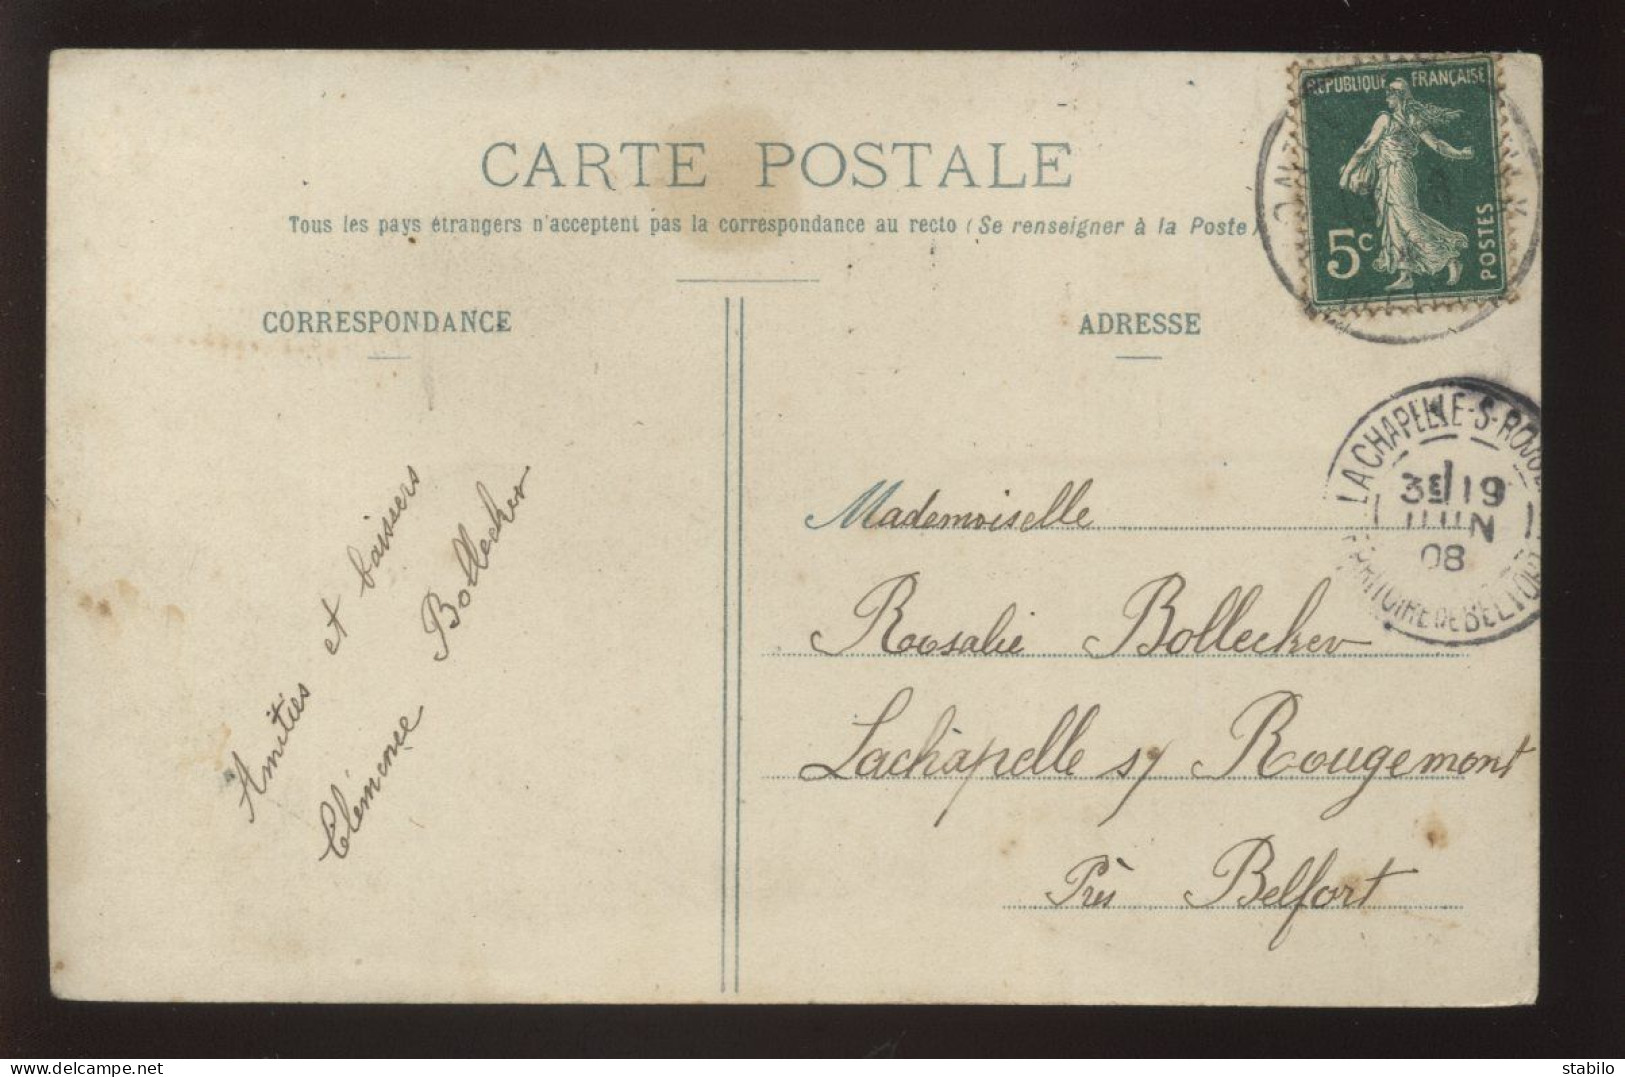 CARTE POSTALE
Tous les pays étrangers n'acceptent pas la correspondance au recto (Se renseigner à la Poste)
CORRESPONDANCE
ADRESSE
RÉPUBLIQUE FRANÇAISE
5c
POSTES
LACHAPELLE-S-ROUG
3E 19
JUIN
08
BELFORT
Amitiés et baisers
Clémence Bollecker
Mademoiselle
Rosalie Bollecker
Lachapelle s/ Rougemont
Près Belfort
delcampe.net
stabilo